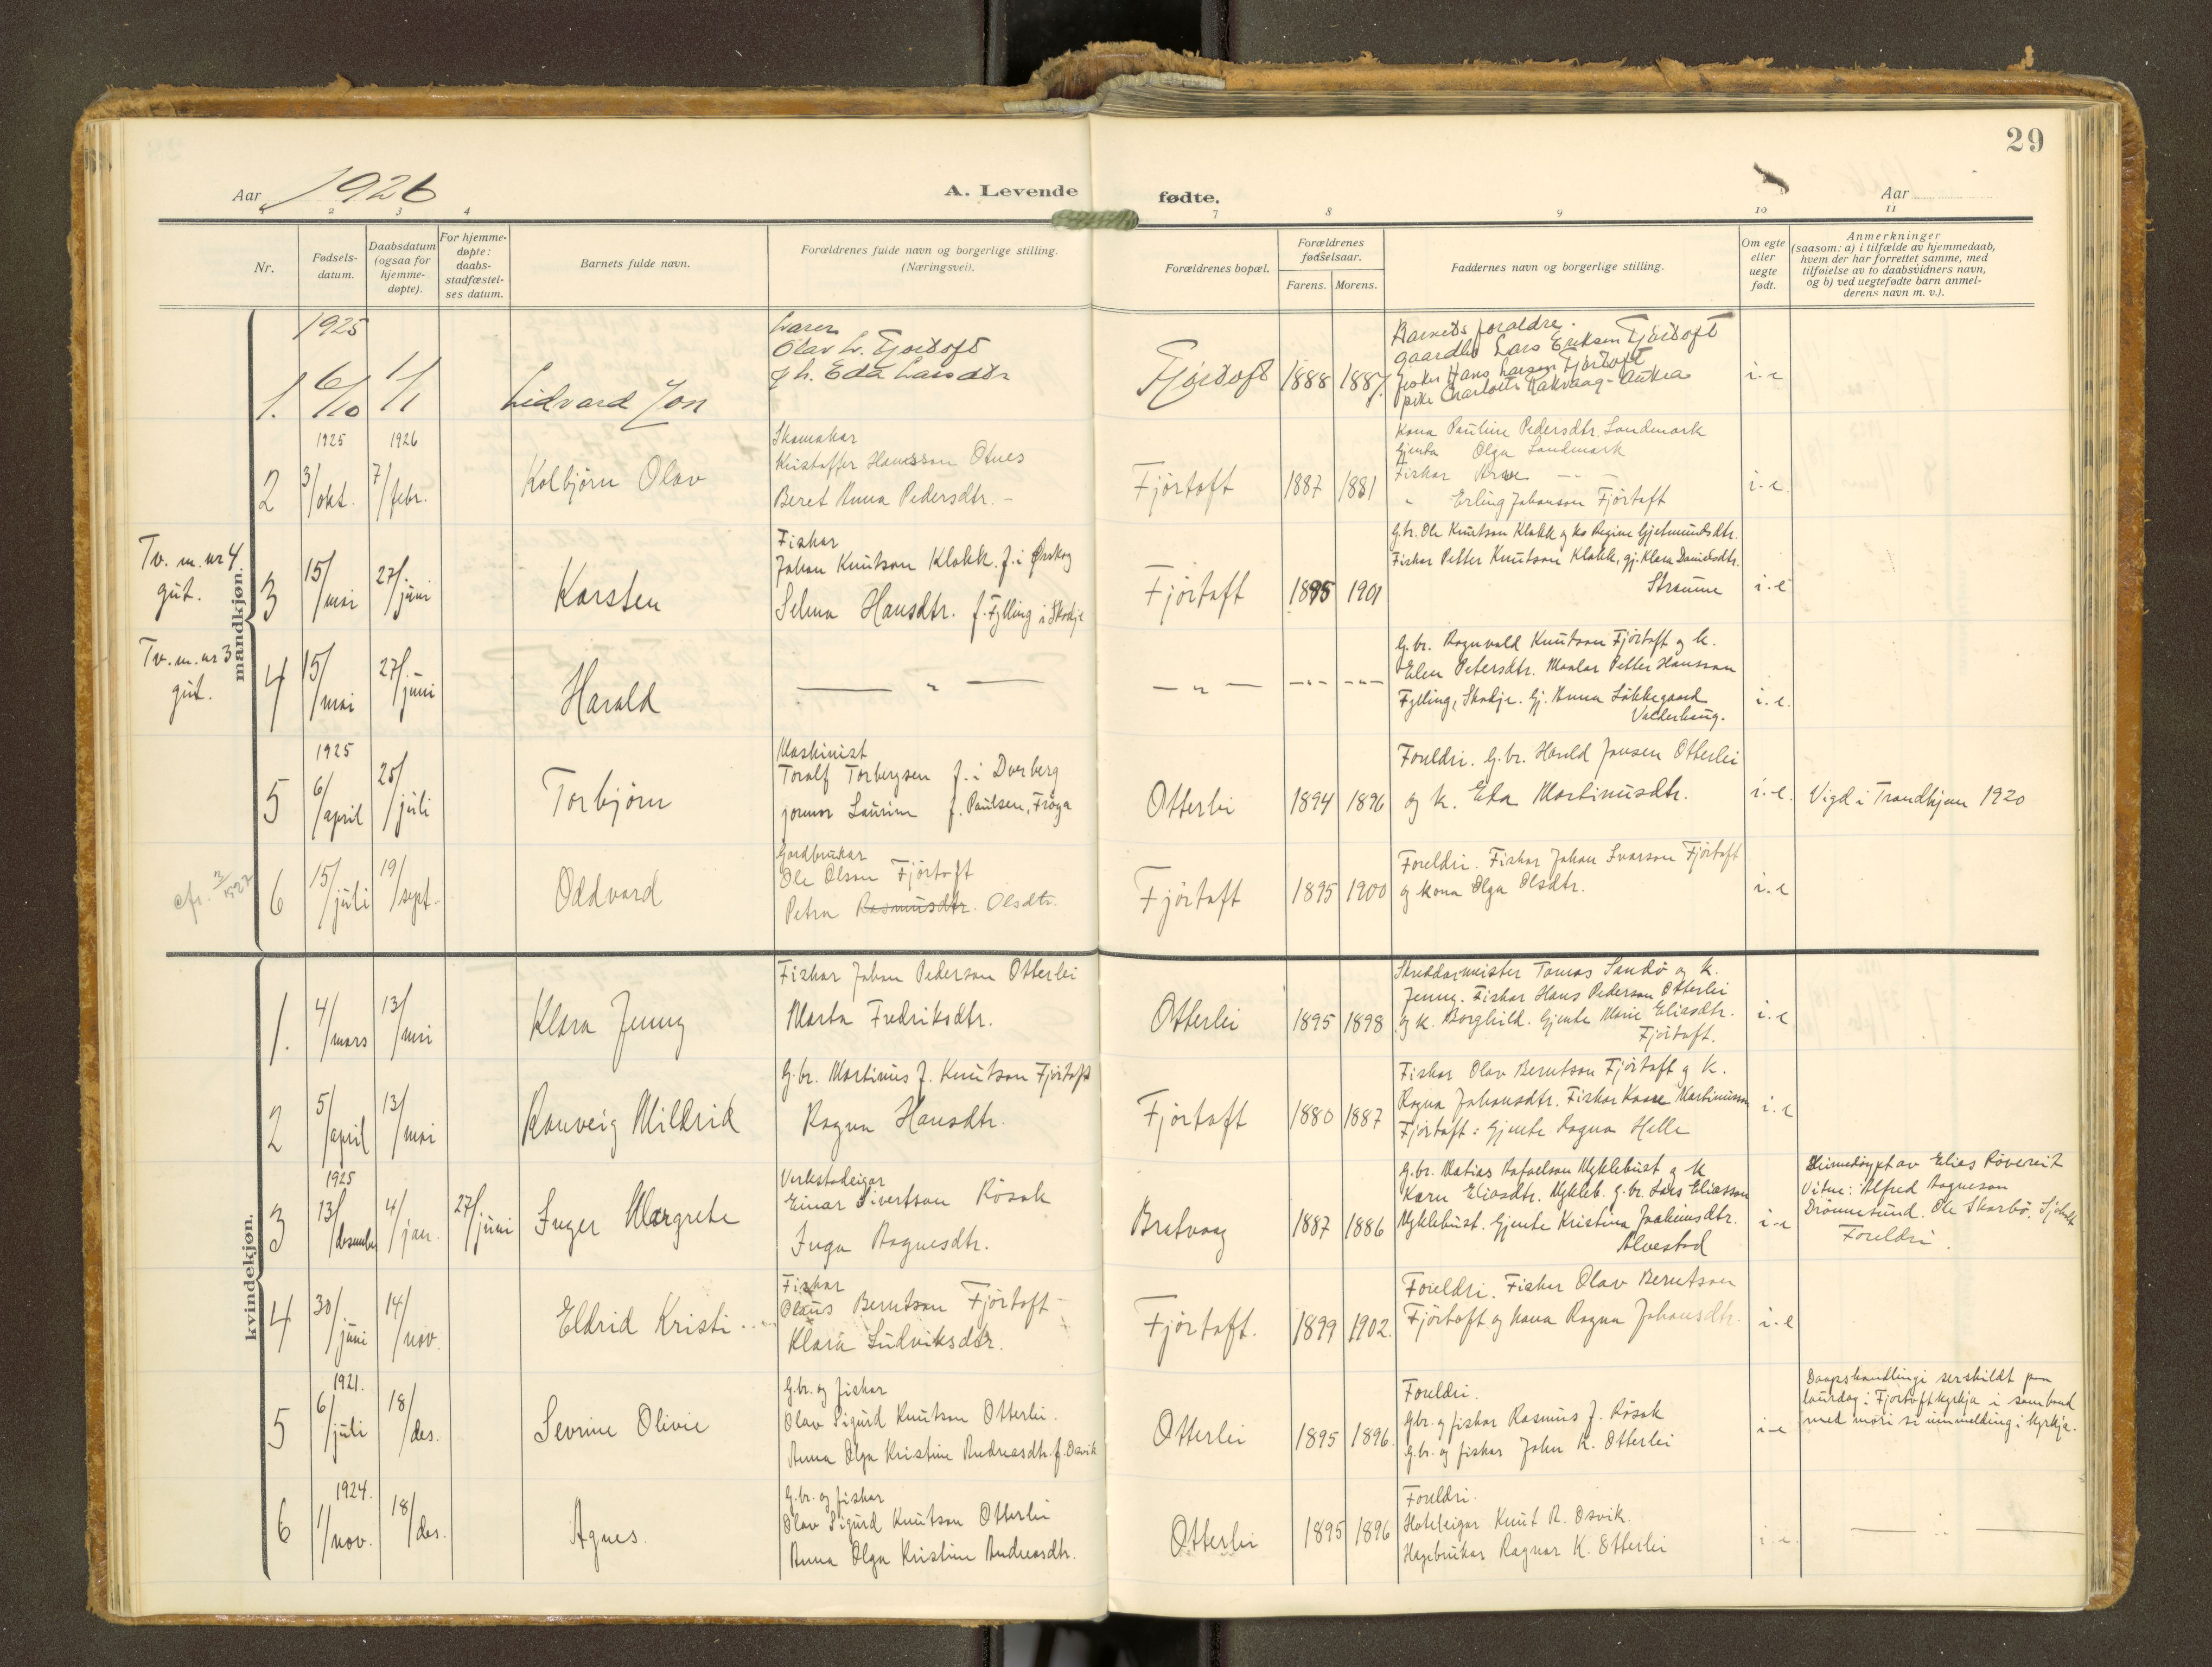 29
Aar 1926
A. Levende
fødte.
Aar
2 3 4
7 8 9 10 11
Nr.
Fødsels-
datum.
Daabsdatum
(ogsaa for
hjemme-
døpte).
For hjemme-
døpte:
daabs-
stadfæstel-
ses datum.
Barnets fulde navn.
Forældrenes fulde navn og borgerlige stilling.
(Næringsvei).
Forældrenes bopæl.
Forældrenes
fødselsaar.
Farens. Morens.
Faddernes navn og borgerlige stilling.
Om egte
eller
uegte
født.
Anmerkninger
(saasom: a) i tilfælde av hjemmedaab,
hvem der har forrettet samme, med
tilføielse av to daabsvidners navn,
og b) ved uegtefødte barn anmel-
derens navn m. v.).
mandkjøn.
1925
1. 6/10 1/1
Lidvard Jon
Olav L. Fjørtoft
g h. Eda Larsdtr
Fjørtoft 1888 1887
Barnets foraldre.
gaardbr Lars Eriksen Fjørtoft
fisker Hans Larsen Fjørtoft
pike Charlotte Rakvaag - Aukra
i-e
1925 1926
2 3/okt. 7/febr.
Kolbjørn Olav
Skomakar
Kristoffer Hansson Otnes
Beret Anna Pedersdtr. -
Fjørtoft 1887 1881
Kona Pauline Pedersdtr. Landmark
Gjenta Olga Landmark
Fiskar Arne - -
" Erling Johanson Fjørtoft
i-e.
Tv. m. nr 4
gut.
3 15/mai 27/juni
Karsten
Fiskar
Johan Knutson Klokk. f. i Ørskog
Selma Hansdtr. f. Fylling i Skodje
Fjørtoft 1895 1901
G.br. Ole Knutson Klokk og ko Regine Gjetmundsdtr.
Fiskar Petter Knutson Klokk, gj. Klara Danielsdtr.
Straume
i-e
Tv. m. nr 3
gut.
4 15/mai 27/juni
Harald
— " —
— " — -"- -"-
G.br. Ragnvald Knutson Fjørtoft og k.
Elen Petersdtr. Maalar Petter Hansson
Fylling, Skodje. Gj. Anna Løkkegaard
Valderhaug.
i-e.
1925
5 6/april 25/juli
Torbjørn
Maskinist
Toralf Torbergsen f. i Dverberg
Laurine f. Paulsen, Frøya
Otterlei 1894 1896
Foreldri. G.br. Harald Jonsen Otterlei
og k. Eda Martinusdtr.
i-e.
Vigd i Trondhjem 1920
cfr. 2/1927
6 15/juli 19/sept.
Oddvard
Gardbrukar
Ole Olson Fjørtoft
Petra Rasmusdtr. Olsdtr.
Fjørtoft 1895 1900
Foreldri. Fiskar Johan Ivarson Fjørtoft
og kona Olga Olsdtr.
i-e
kvindekjøn.
1. 4/mars 13/mai
Klara Jenny
Fiskar Johan Pederson Otterlei
Marta Fredriksdtr.
Otterlei 1895 1898
Skreddarmeister Tomas Sandø og k.
Jenny. Fiskar Hans Pederson Otterlei
og k. Borghild. Gjente Marie Eliasdtr.
Fjørtoft.
i-e
2 5/april 13/mai
Ranveig Mildrid
G.br. Martinus J. Knutson Fjørtoft
Ragna Hansdtr.
Fjørtoft 1880 1887
Fiskar Olav Berntson Fjørtoft og k.
Ragna Johansdtr. Fiskar Kaare Martinusson
Fjørtoft: Gjente Dagna Helle
i-e
1925
3 13/desember 4/jan. 27/juni
Inger Margrete
Verkstadeigar
Einar Sivertson Røsok
Inga Aagnesdtr.
Bratvaag 1887 1886
G.br. Matias Rafaelson Myklebust og k
Karn Eliasdtr. Mykleb. G.br. Lars Eliasson
Myklebust. Gjente Kristina Joakimsdtr.
Alvestad
i-e
Heimedøypt av Elias Røvereit
Vitne: Alfred Aagneson
Drønnesund. Ole Skarbø.
Foreldri.
4 30/juni 14/nov.
Eldrid Kristi
Fiskar
Olaus Berntson Fjørtoft
Klara Ludviksdtr.
Fjørtoft. 1899 1902.
Foreldri. Fisker Olav Berntson
Fjørtoft og kona Ragna Johansdtr.
i-e
1921.
5 6/juli 18/des.
Sevrine Olivie
G.br. og fiskar
Olav Sigurd Knutson Otterlei.
Anna Olga Kristine Andreasdtr. f. Osvik
Otterlei 1895 1896.
Foreldri.
Gbr. og fiskar Rasmus J. Røsok
G.br. og fiskar John K. Otterlei
i-e
Daapshandlingi serskildt paa
laurdag i Fjørtoftkyrkja i samband
med mori si innmelding i kyrkja.
1924.
6 1/nov. 18/des.
Agnes.
G.br. og fiskar
Olav Sigurd Knutson Otterlei
Anna Olga Kristine Andreasdtr.
Otterlei 1895 1896
Foreldri.
Hotelleigar Knut R. Osvik.
Hagebrukar Ragnar K. Otterlei
i-e.
— " —